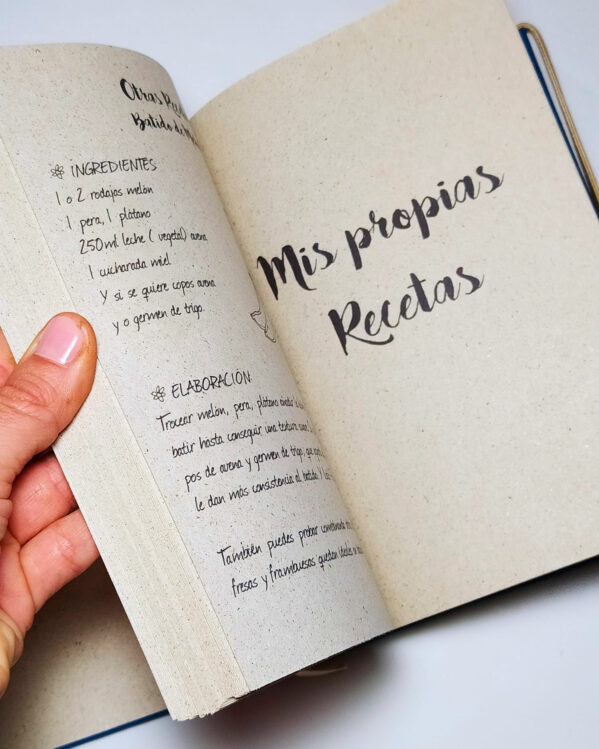 Otras
Batido de
INGREDIENTES
1 o 2 rodajas melón
1 pera, 1 plátano
250ml leche ( vegetal) avena
1 cucharada miel
Y si se quiere copos avena
y o germen de trigo.
ELABORACIÓN
Trocear melón, pera, plátano añadir
batir hasta conseguir una textura
pos de avena y germen de trigo, que
le dan más consistencia al batido.
También puedes probar
fresas y frambuesas quedan
Mis propias
Recetas